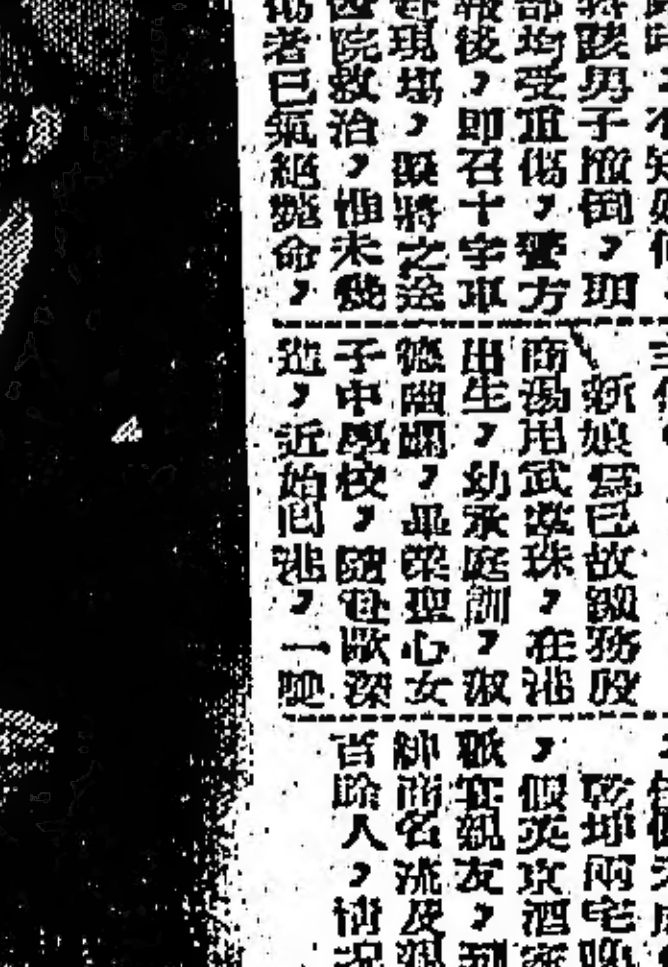 該男子撞倒，頭
部均受重傷，警方
報後，即召十字車
現塲，擬將之送
醫院救治，惟未幾
傷者已氣絕斃命，
新娘爲已故務殷
商湯用武掌珠，在港
出生，幼承庭訓，淑
德幽嫻，畢業聖心女
子中學校，隨赴歐深
造，近始回港，一
乾坤兩宅
，假英京酒家
歡宴親友，到
紳商名流及親
百餘人，情況